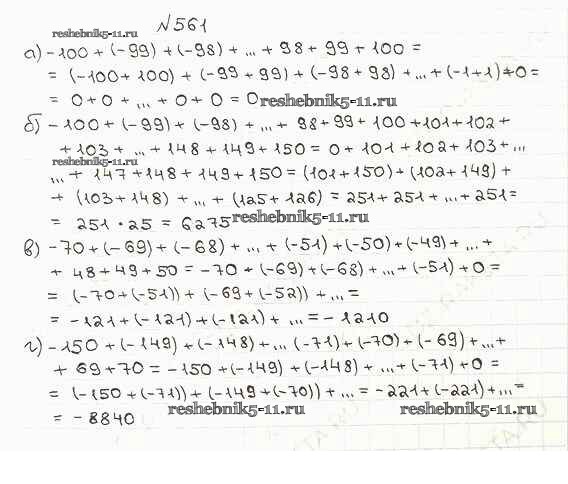 №561
reshebnik5-11.ru
а) -100 + (-99) + (-98) + ... + 98 + 99 + 100 =
= (-100 + 100) + (-99 + 99) + (-98 + 98) + ... + (-1+1) + 0 =
= 0 + 0 + ... + 0 + 0 = 0 reshebnik5-11.ru
б) -100 + (-99) + (-98) + ... + 98 + 99 + 100 + 101 + 102 +
+ 103 + ... + 148 + 149 + 150 = 0 + 101 + 102 + 103 + ...
reshebnik5-11.ru
... + 147 + 148 + 149 + 150 = (101 + 150) + (102 + 149) +
+ (103 + 148) + ... + (125 + 126) = 251 + 251 + ... + 251 =
= 251 · 25 = 6275 reshebnik5-11.ru
в) -70 + (-69) + (-68) + ... + (-51) + (-50) + (-49) + ... +
+ 48 + 49 + 50 = -70 + (-69) + (-68) + ... + (-51) + 0 =
= (-70 + (-51)) + (-69 + (-52)) + ... =
= -121 + (-121) + (-121) + ... = -1210
г) -150 + (-149) + (-148) + ... (-71) + (-70) + (-69) + ... +
+ 69 + 70 = -150 + (-149) + (-148) + ... + (-71) + 0 =
= (-150 + (-71)) + (-149 + (-70)) + ... = -221 + (-221) + ... =
= -8840
reshebnik5-11.ru reshebnik5-11.ru